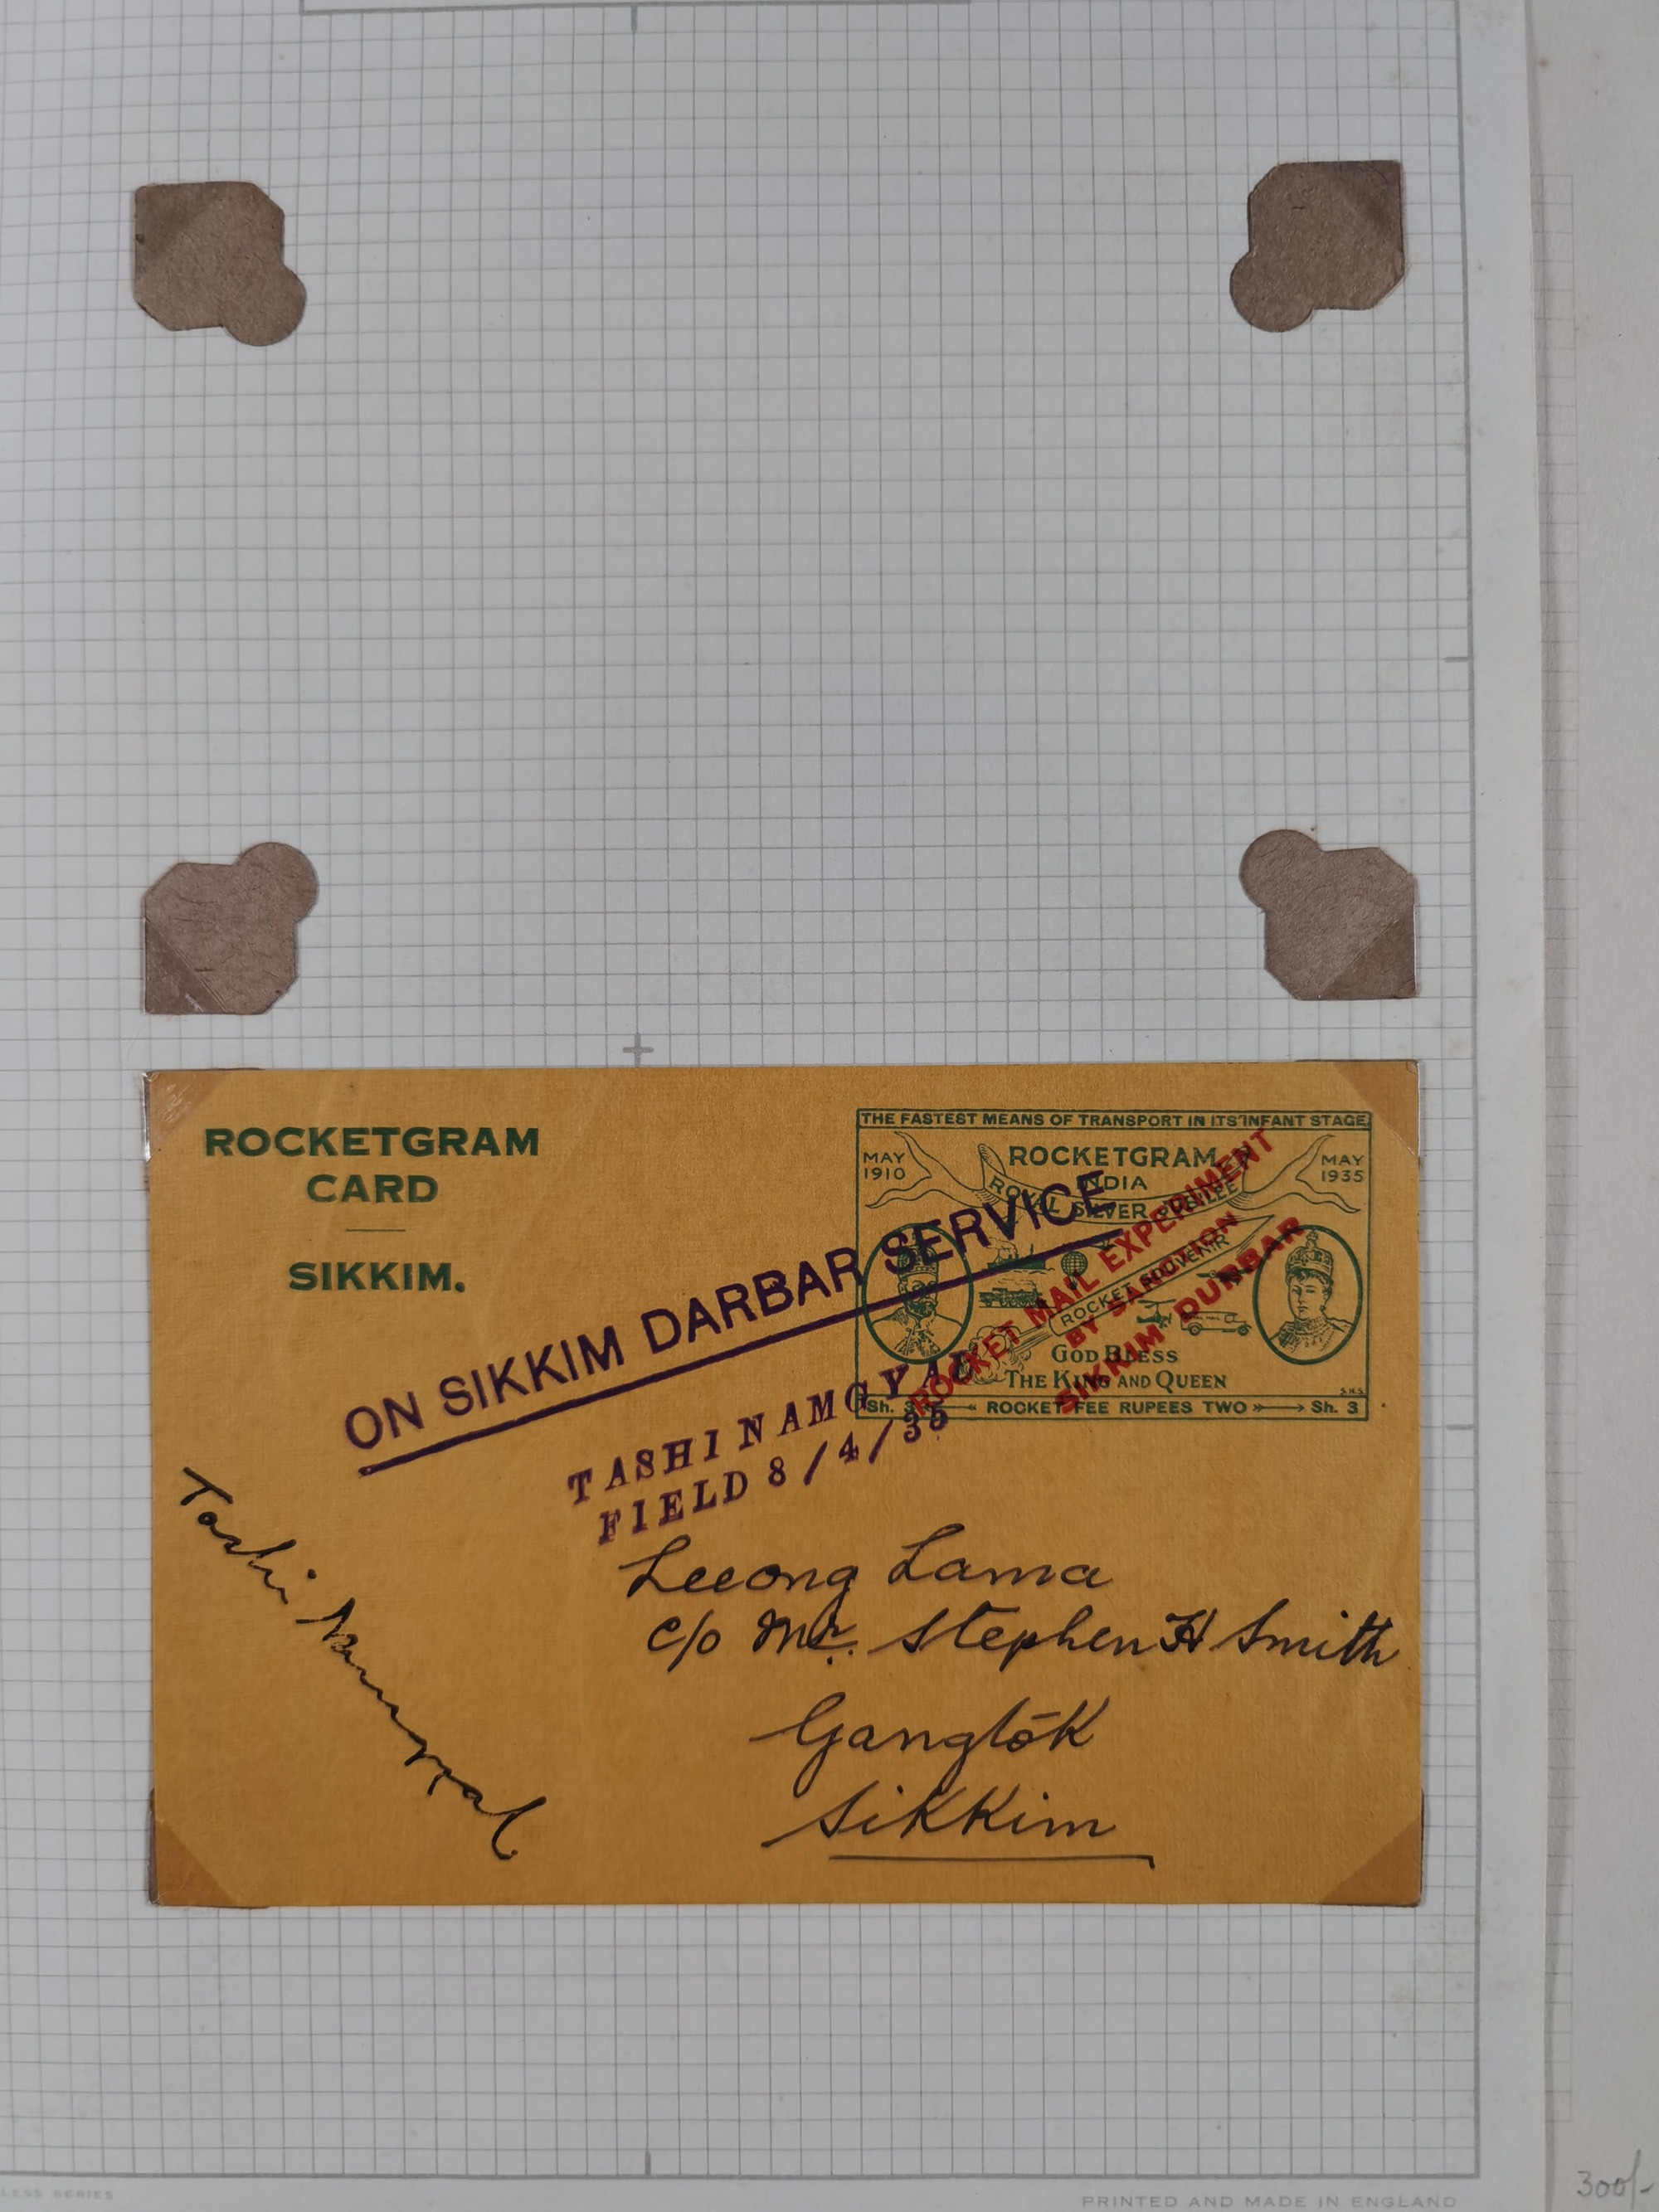 ROCKETGRAM
CARD
SIKKIM.
THE FASTEST MEANS OF TRANSPORT IN ITS INFANT STAGE
MAY
1910
ROCKETGRAM
INDIA
MAY
1935
ROYAL SILVER JUBILEE
ROCKET SOUVENIR
GOD BLESS
THE KING AND QUEEN
S.H.S.
Sh. 3 ROCKET FEE RUPEES TWO Sh. 3
ROCKET MAIL EXPERIMENT
BY SANCTION
SIKKIM DURBAR
ON SIKKIM DARBAR SERVICE
TASHI NAMGYAL
FIELD 8/4/35
Tashi Namgyal
Leeong Lama
c/o Mr. Stephen H Smith
Gangtok
Sikkim
LESS SERIES
PRINTED AND MADE IN ENGLAND
300/-